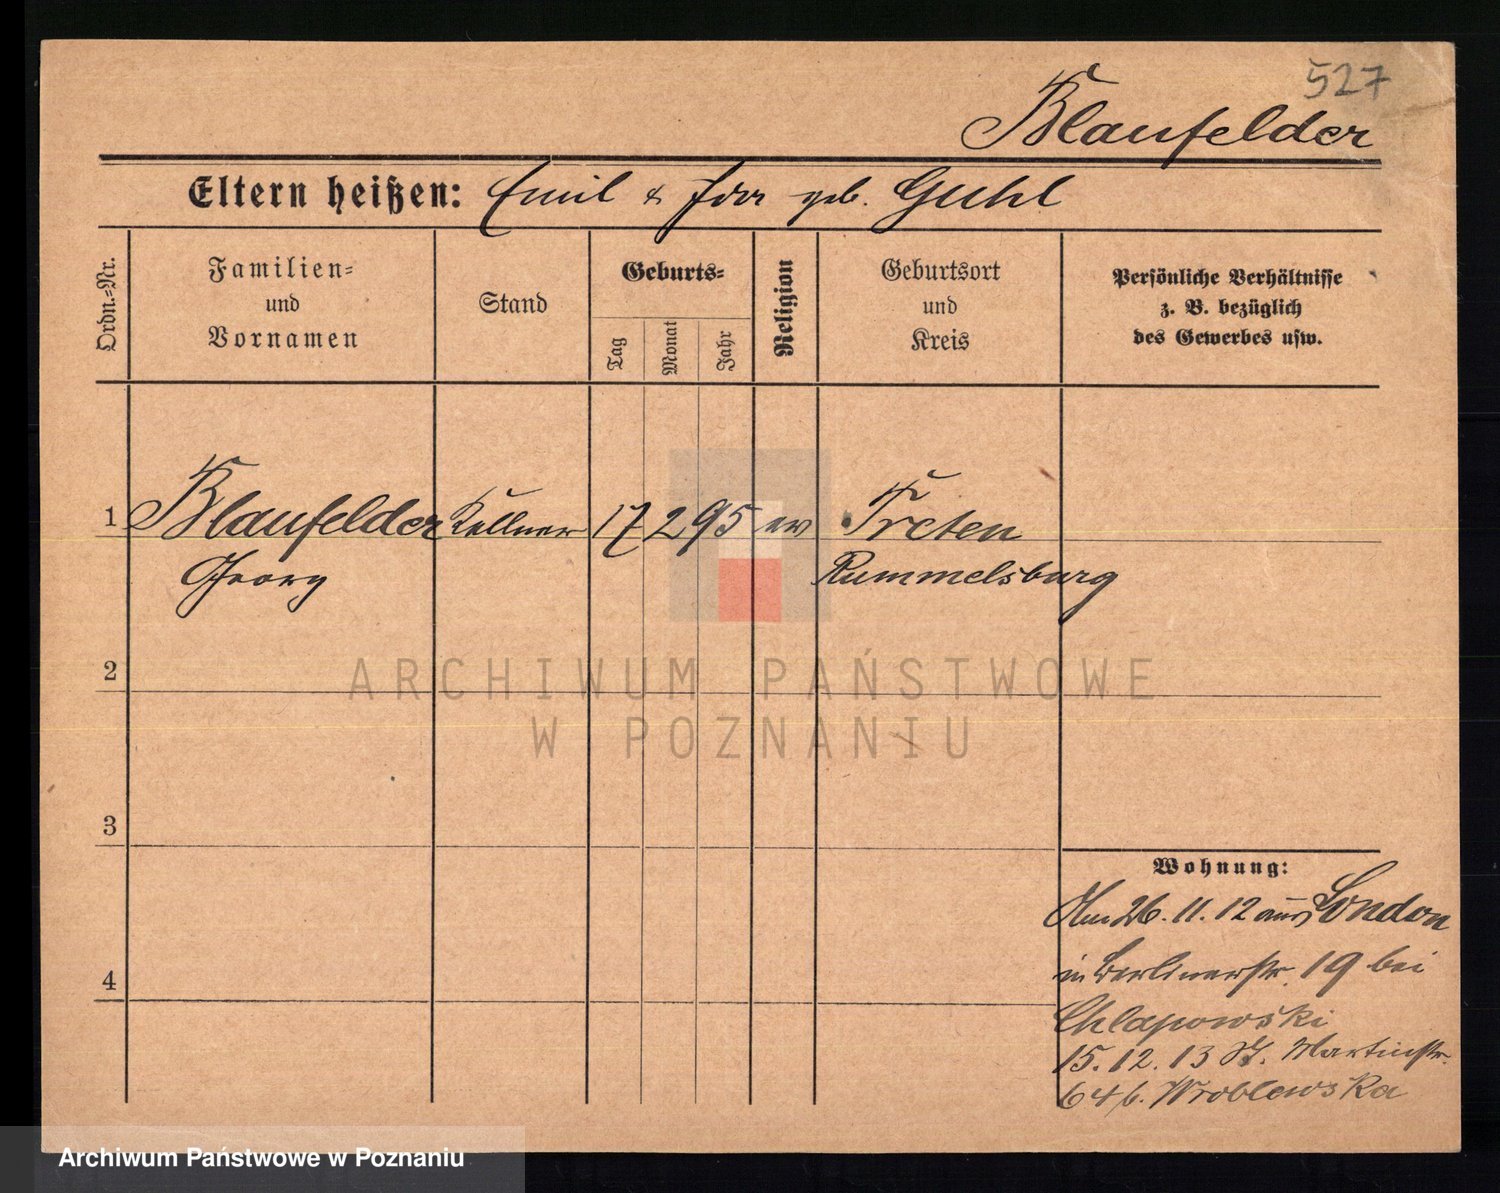 527
Blaufelder
Eltern heißen: Emil & Ida geb. Guhl
Ordn.=Nr.
Familien=
und
Vornamen
Stand
Geburts=
Tag
Monat
Jahr
Religion
Geburtsort
und
Kreis
Persönliche Verhältnisse
z. B. bezüglich
des Gewerbes usw.
1 Blaufelder Kellner 17 2 95 ev Treten
Georg Rummelsburg
2
ARCHIWUM PAŃSTWOWE
W POZNANIU
3
4
Wohnung:
Am 26. 11. 12 aus London
in Berlinerstr. 19 bei
Chlapowski
15. 12. 13 St. Martinstr.
64 b. Wroblewska
Archiwum Państwowe w Poznaniu